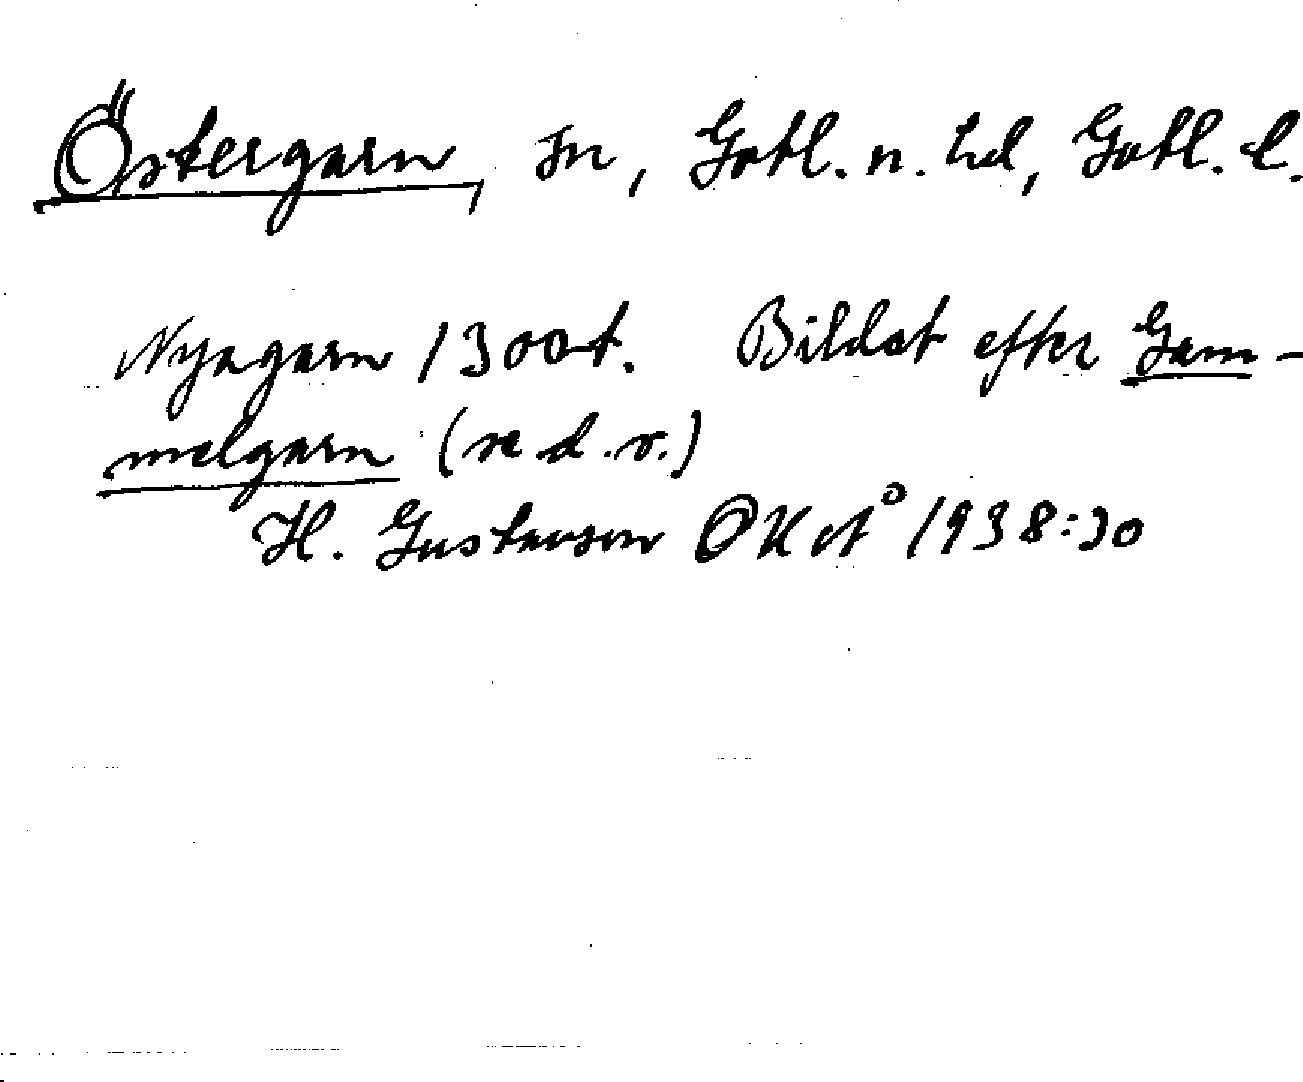 Östergarn, sn, Gotl. n. hd, Gotl. l.
Nyagarn 1300t. Bildat efter Gam-
melgarn (se d. o.)
H. Gustavson OKvÅ 1938:30